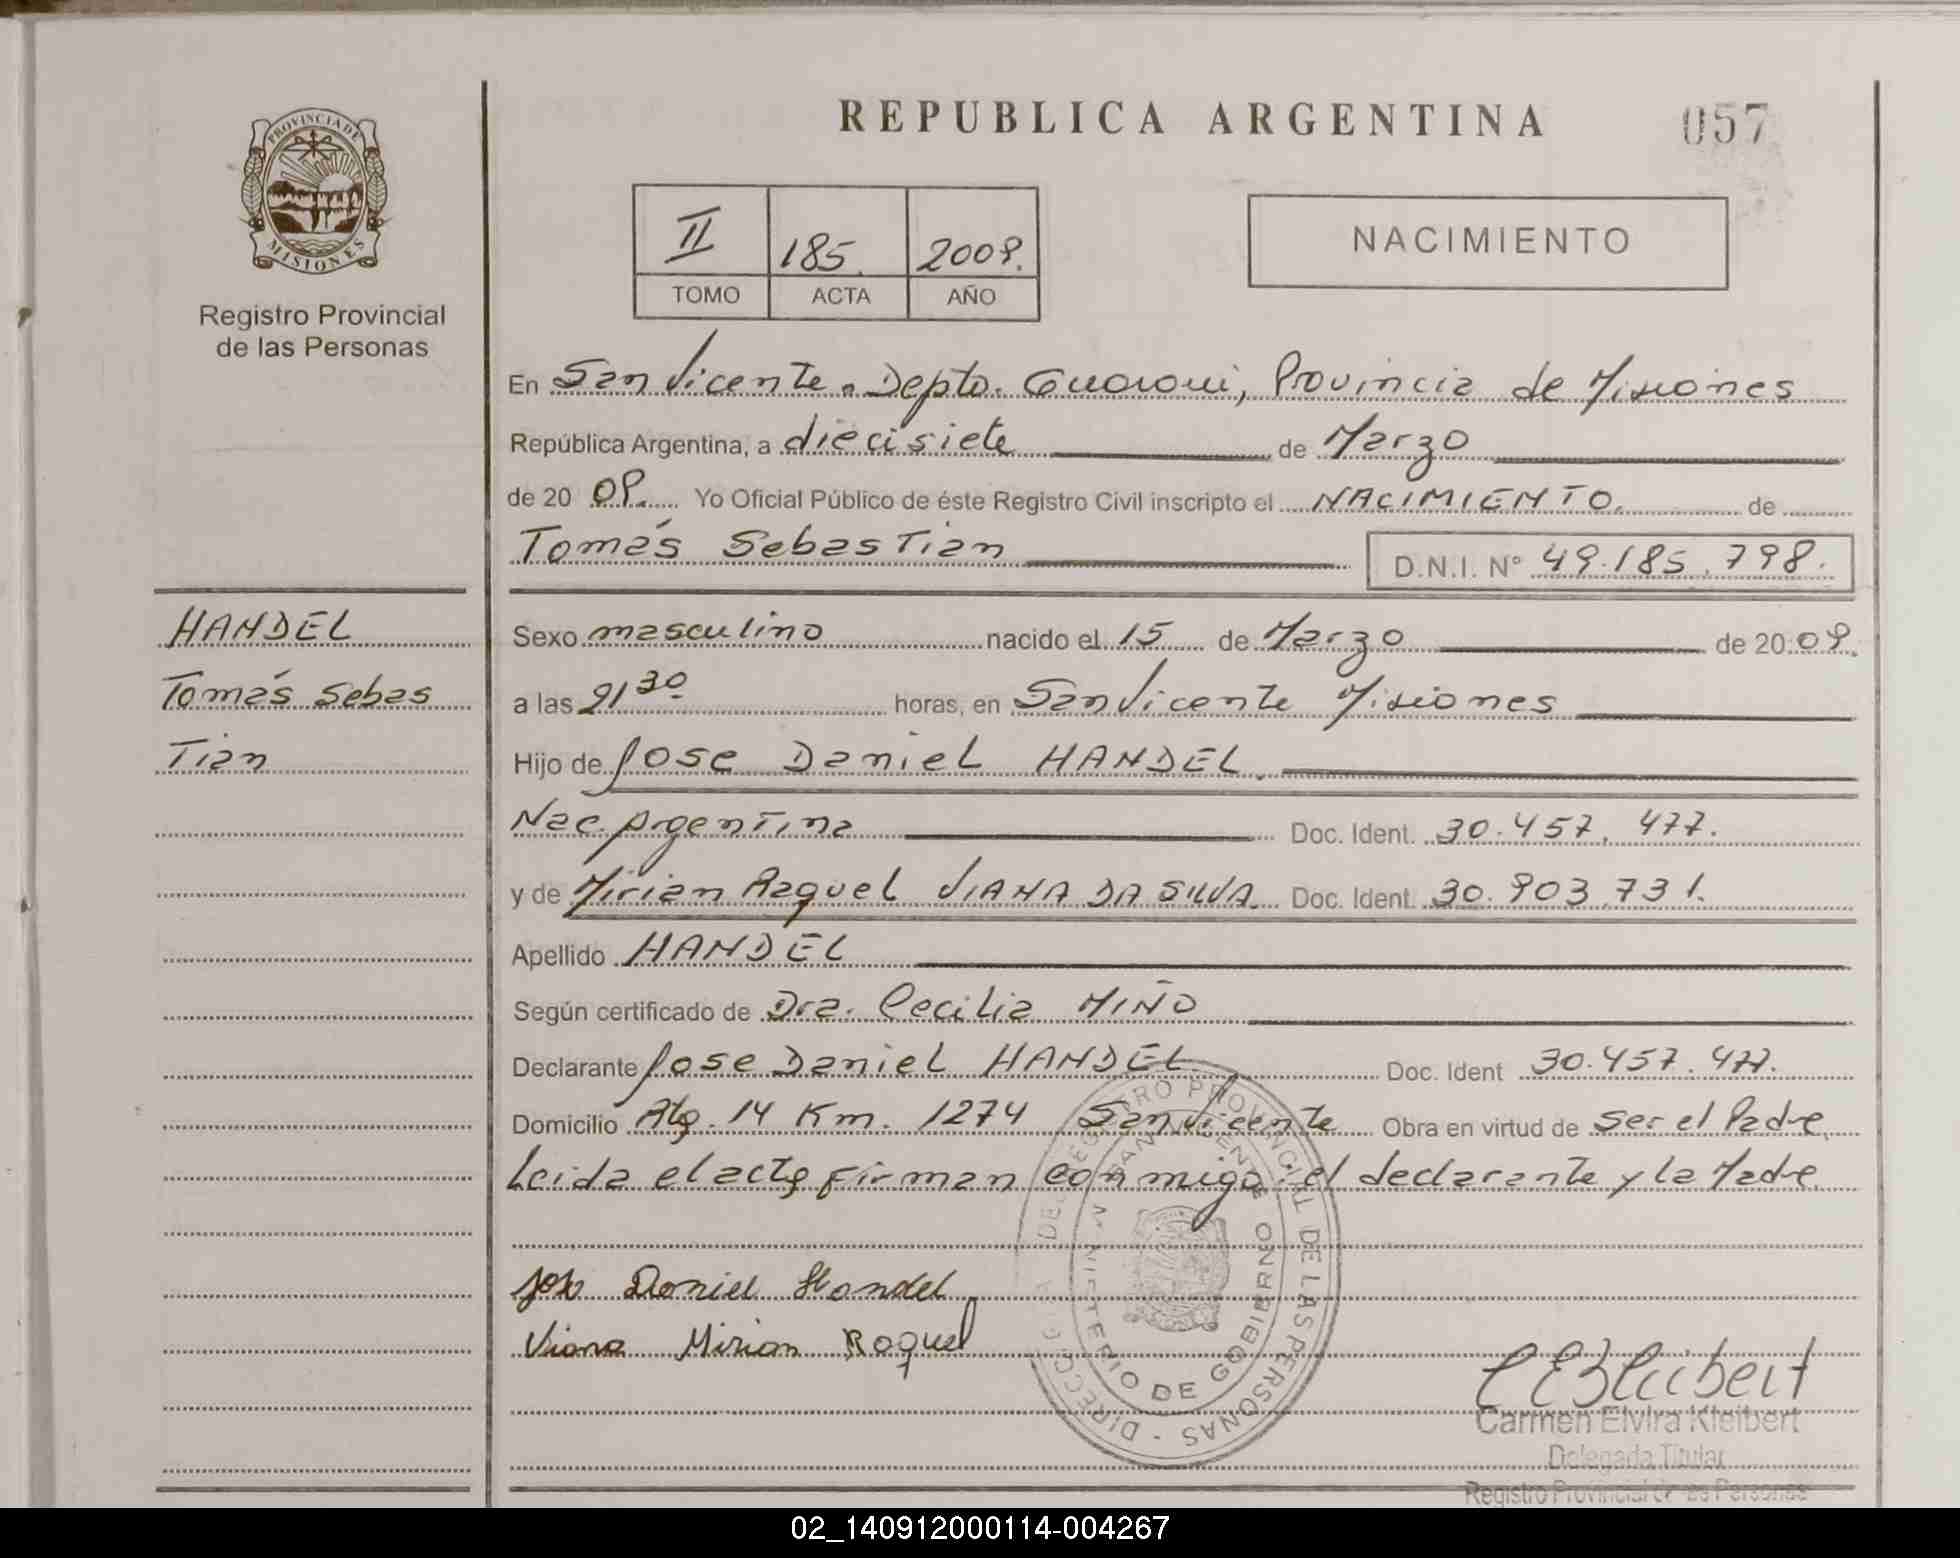 REPUBLICA ARGENTINA
057
PROVINCIA DE
MISIONES
Registro Provincial
de las Personas
II 185. 2009.
TOMO ACTA AÑO
NACIMIENTO
En San Vicente. Depto. Guaraní, Provincia de Misiones
República Argentina, a diecisiete de Marzo
de 20 09. Yo Oficial Público de éste Registro Civil inscripto el NACIMIENTO. de
Tomás Sebastian
D.N.I. Nº 49.185.798.
HANDEL
Tomás Sebas
Tian
Sexo masculino nacido el 15 de Marzo de 20 09.
a las 21 30 horas, en San Vicente Misiones
Hijo de Jose Daniel HANDEL.
Nac. Argentina Doc. Ident. 30.457.477.
y de Mirian Raquel VIANA DA SILVA. Doc. Ident. 30.903.731.
Apellido HANDEL
Según certificado de Dra. Cecilia MIÑO
Declarante Jose Daniel HANDEL Doc. Ident 30.457.477.
Domicilio Rta. 14 Km. 1274 San Vicente Obra en virtud de ser el Padre.
Leida el acta firman conmigo: el declarante y la Madre
Jose Daniel Handel
Viana Mirian Raquel
REGISTRO PROVINCIAL DE LAS PERSONAS -
SAN VICENTE
MINISTERIO DE GOBIERNO
Carmen Elvira Kleibert
Delegada Titular
Registro Provincial de las Personas
02_140912000114-004267